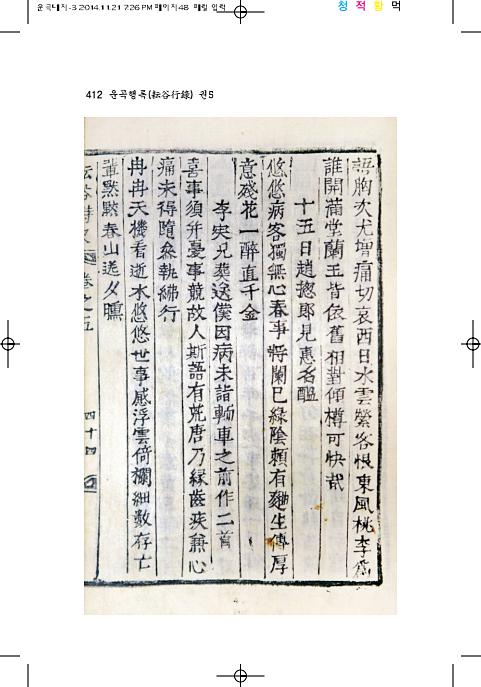 운곡내지-3 2014.11.21 7:26 PM 페이지48
청 적 황 먹
412 운곡행록(耘谷行錄) 권5
語胸次尤增痛切哀西日水雲縈客恨東風桃李爲
誰開滿堂蘭玉皆依舊相對傾樽可快哉
十五日趙摠郎見惠名醞
悠悠病客獨無心春事將闌已綠陰賴有鄭生傳厚
意殘花一醉直千金
李宋兄葬送僕因病未詣輀車之前作二首
喜事須幷憂事競故人斯語有荒唐乃緣齒疾兼心
痛未得隨叅執紼行
冉冉天機看逝水悠悠世事感浮雲倚欄細數存亡
輩黙黙春山送夕曛
耘谷詩史 卷之五 四十四